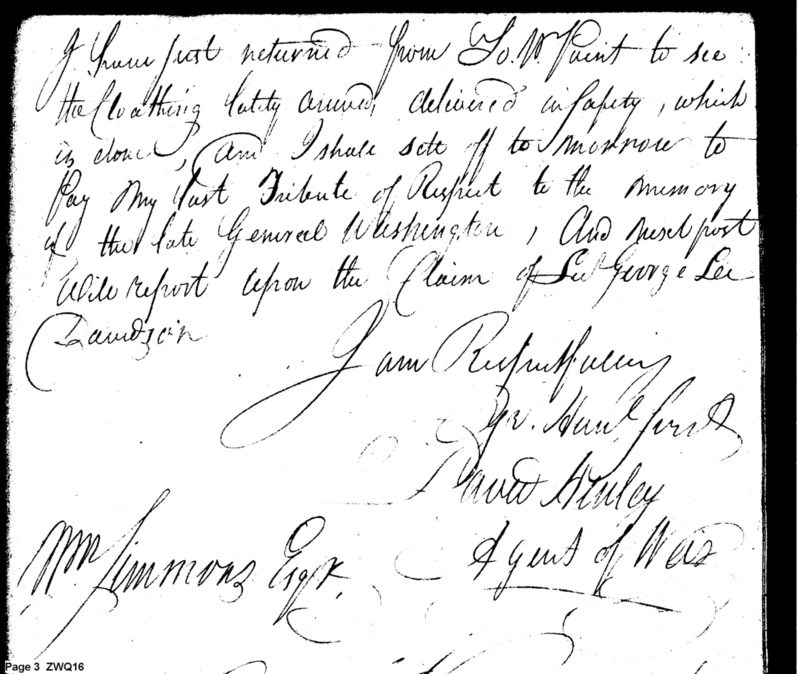 I have just returned from So. W. Point to see
the Cloathing lately arrived, delivered in Safety, which
is done, And I shall sett off to morrow to
Pay my last Tribute of Respect to the memory
of the late General Washington, And next post
Will report upon the Claim of Lieut George Lee
Davidson
I am Respectfully
Yr. Humle Servt
David Henley
Agent of War
Wm Simmons Esqr.
Page 3 ZWQ16